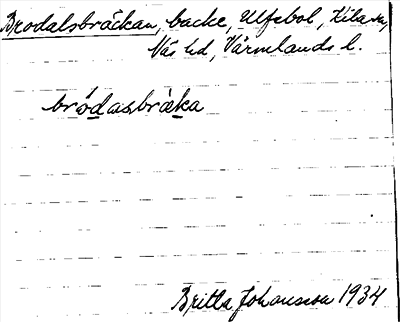 Brodalsbräckan, backe, Ulfsbol, Kila sn,
Näs hd, Värmlands l.
brödasbräka
Britta Johansson 1934